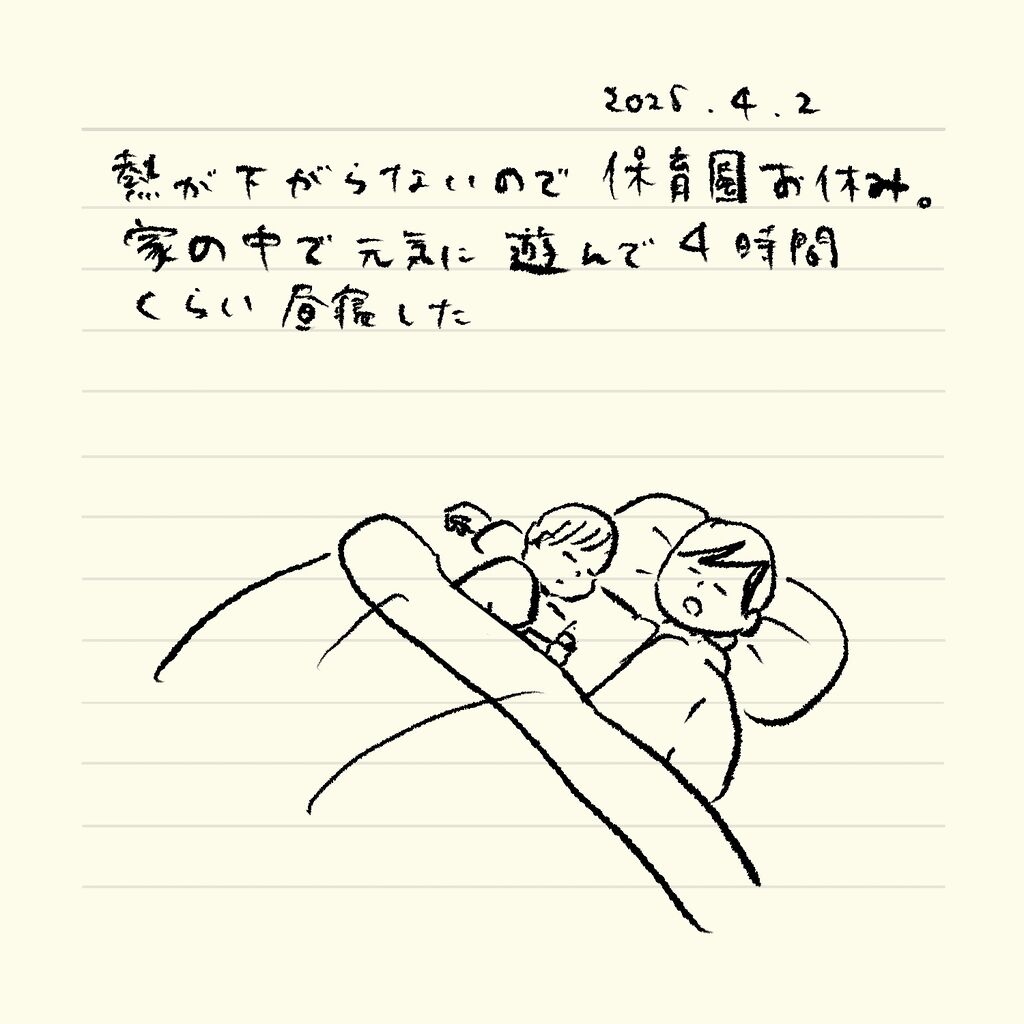 2025.4.2
熱が下がらないので保育園お休み。
家の中で元気に遊んで4時間
くらい昼寝した